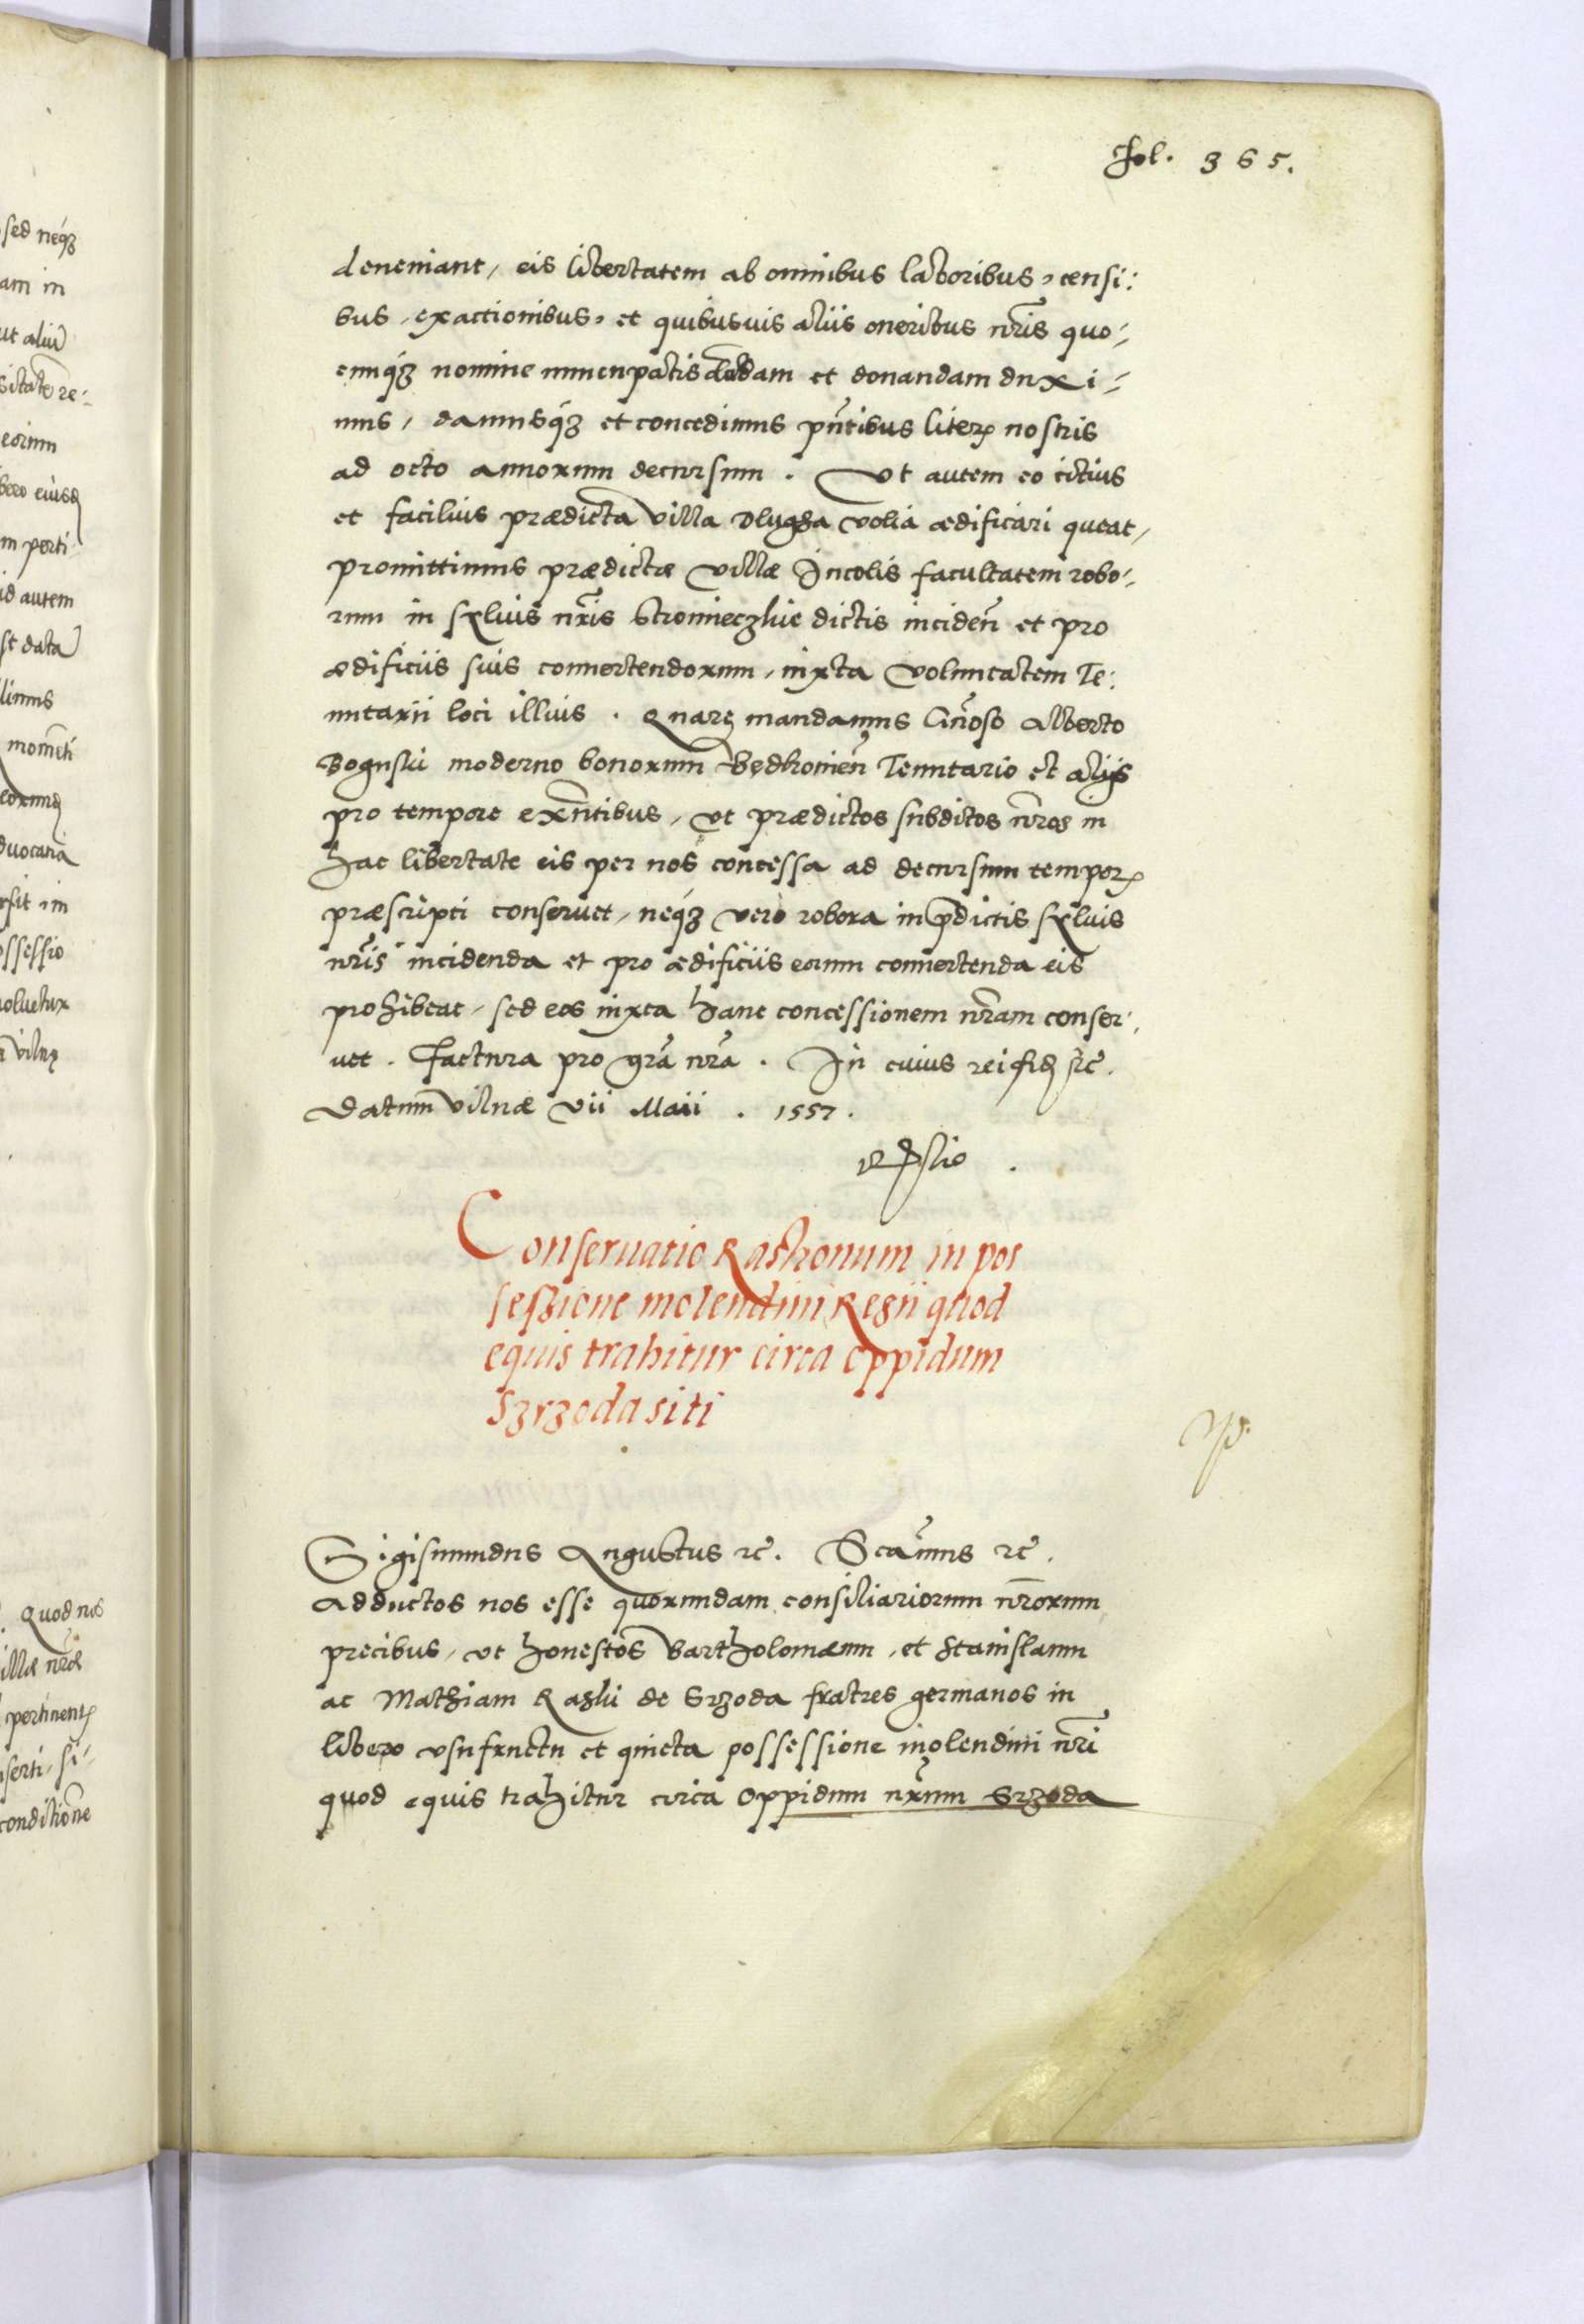 Fol. 365.
deueniant, eis libertatem ab omnibus laboribus, censi:
bus, exactionibus, et quibusuis aliis oneribus nr̃is quo-
cunq́ʒ nomine nuncupatis dādam et donandam duxi-
mus, damusq́ʒ et concedimus pñtibus literꝭ nostris
ad octo annorum decursum. Vt autem eo citius
et facilius prædicta villa Dlugha volia ædificari queat,
promittimus prædictæ villæ Incolis facultatem robo-
rum in sylvis nr̃is Stromieczkie dictis inciden̄ et pro
ædificiis suis conuertendorum, iuxta voluntatem Te:
nutarii loci illius. Quare mandamus Gñoso Alberto
Boguski moderno bonorum Będkouien̄ Tenutario et aliis
pro tempore exñtibus, vt prædictos subditos nr̃os in
hac libertate eis per nos concessa ad decursum temporꝭ
præscripti conseruet, neq́ʒ vero robora in p̄dictis sylvis
nr̃is incidenda et pro ædificiis eorum conuertenda eis
prohibeat, sed eos iuxta hanc concessionem nr̃am conser:
uet. Factura pro gr̃a nr̃a. In cuius rei fidē etc̃.
Datum Vilnæ vii Maii. 1557.
Conseruatio Raskonum in pos
sessione molendini Regii quod
equis trahitur circa oppidum
Szrzoda siti
Sigismundus Augustus etc̃. Sca̅mus etc̃.
Adductos nos esse quorundam consiliariorum nr̃orum
precibus, vt honestos Bartholomæum, et Stanislaum
ac Mathiam Raski de Srzoda fratres germanos in
libero vsufructu et quieta possessione molendini nr̃i
quod equis trahitur circa oppidum nr̃um Srzoda